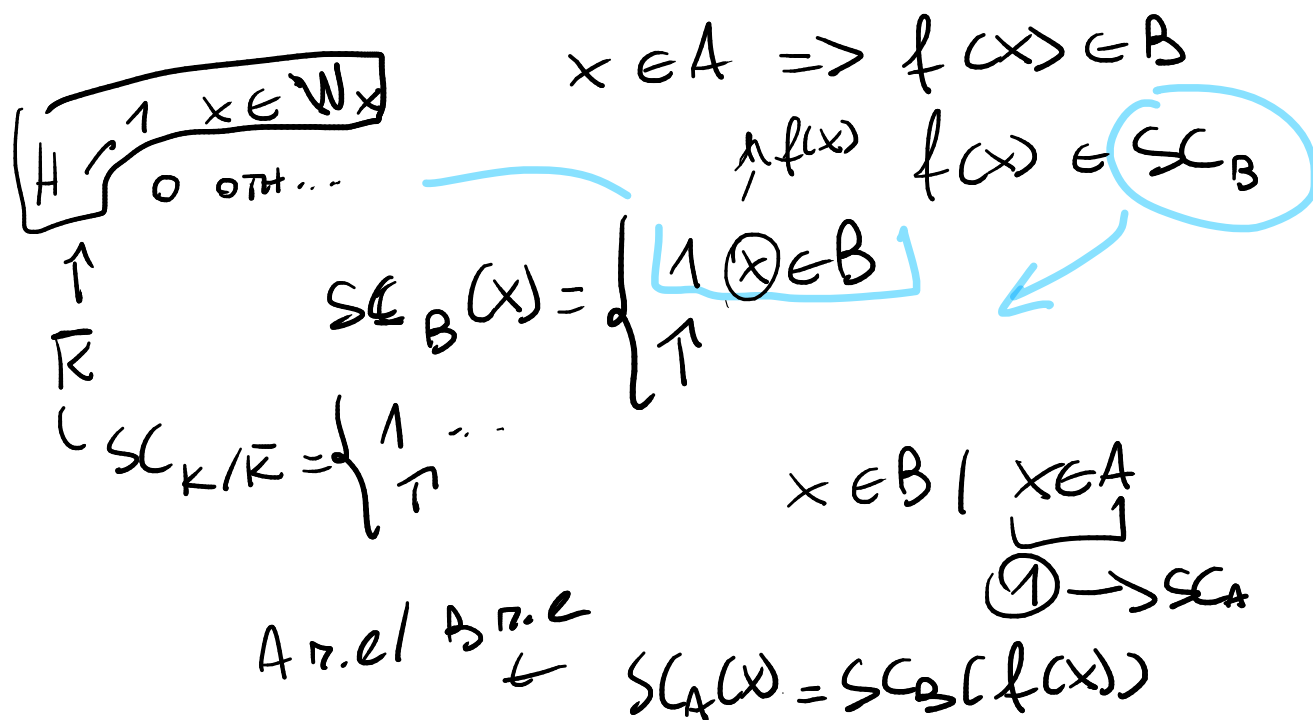 x ∈ A => f(x) ∈ B
H 1 x ∈ Wx
0 OTH...
f(x) f(x) ∈ SC_B
SC_B(x) = { 1 x ∈ B
↑
↑
K̅
SC_K/K̅ = { 1 ...
↑
x ∈ B / x ∈ A
1 → SC_A
A r.e / B r.e
← SC_A(x) = SC_B(f(x))